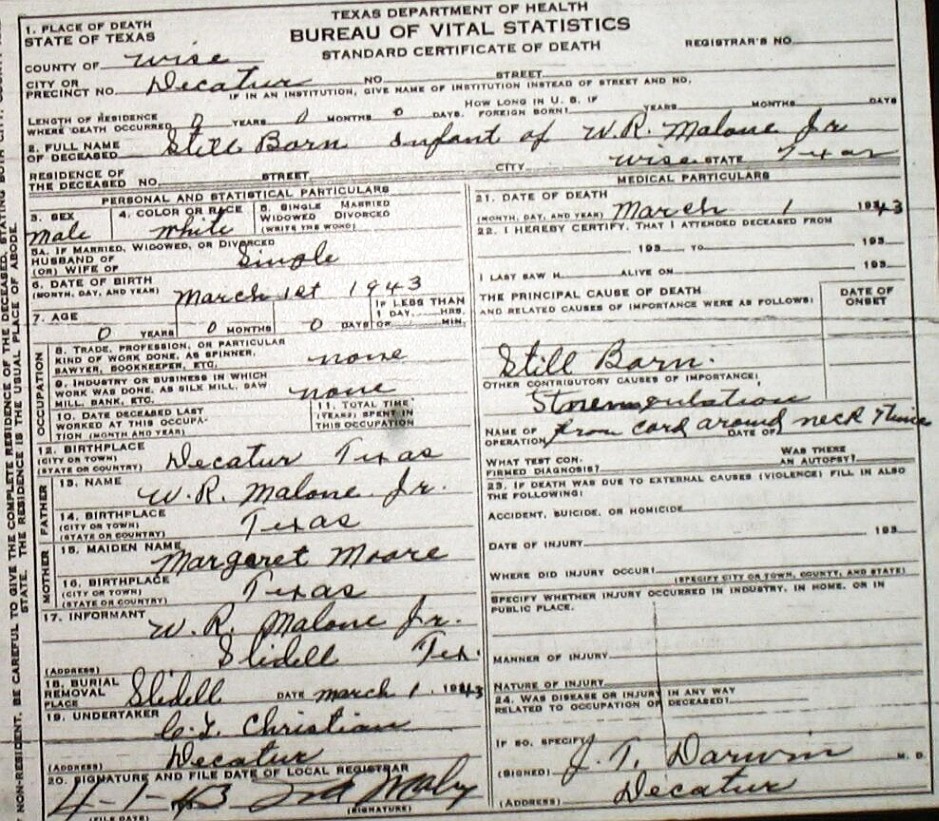 TEXAS DEPARTMENT OF HEALTH
BUREAU OF VITAL STATISTICS
STANDARD CERTIFICATE OF DEATH
1. PLACE OF DEATH
STATE OF TEXAS
REGISTRAR'S NO.
COUNTY OF Wise
CITY OR PRECINCT NO. Decatur NO. STREET
IF IN AN INSTITUTION, GIVE NAME OF INSTITUTION INSTEAD OF STREET AND NO.
LENGTH OF RESIDENCE WHERE DEATH OCCURRED 0 YEARS 0 MONTHS 0 DAYS. HOW LONG IN U. S. IF FOREIGN BORN? YEARS MONTHS DAYS
2. FULL NAME OF DECEASED Still Born Infant of W.R. Malone Jr
RESIDENCE OF THE DECEASED NO. STREET CITY Wise STATE Texas
PERSONAL AND STATISTICAL PARTICULARS
3. SEX
Male
4. COLOR OR RACE
White
5. SINGLE MARRIED
WIDOWED DIVORCED
(WRITE THE WORD)
5A. IF MARRIED, WIDOWED, OR DIVORCED
HUSBAND OF
(OR) WIFE OF
Single
6. DATE OF BIRTH
(MONTH, DAY, AND YEAR) March 1st 1943
7. AGE
0 YEARS 0 MONTHS 0 DAYS
IF LESS THAN
1 DAY HRS.
OR MIN.
OCCUPATION
8. TRADE, PROFESSION, OR PARTICULAR
KIND OF WORK DONE, AS SPINNER,
SAWYER, BOOKKEEPER, ETC. none
9. INDUSTRY OR BUSINESS IN WHICH
WORK WAS DONE, AS SILK MILL, SAW
MILL, BANK, ETC. none
10. DATE DECEASED LAST
WORKED AT THIS OCCUPA-
TION (MONTH AND YEAR)
11. TOTAL TIME
(YEARS) SPENT IN
THIS OCCUPATION
12. BIRTHPLACE
(CITY OR TOWN)
(STATE OR COUNTRY) Decatur Texas
FATHER
13. NAME
W. R. Malone Jr.
14. BIRTHPLACE
(CITY OR TOWN)
(STATE OR COUNTRY) Texas
MOTHER
15. MAIDEN NAME
Margaret Moore
16. BIRTHPLACE
(CITY OR TOWN)
(STATE OR COUNTRY) Texas
17. INFORMANT
W. R. Malone Jr.
(ADDRESS) Slidell Tex.
18. BURIAL
REMOVAL
PLACE Slidell DATE March 1, 1943
19. UNDERTAKER
C. L. Christian
(ADDRESS) Decatur
20. SIGNATURE AND FILE DATE OF LOCAL REGISTRAR
4-1-43
(FILE DATE) (SIGNATURE)
MEDICAL PARTICULARS
21. DATE OF DEATH
(MONTH, DAY, AND YEAR) March 1 1943
22. I HEREBY CERTIFY, THAT I ATTENDED DECEASED FROM
193 TO 193
I LAST SAW H ALIVE ON 193
THE PRINCIPAL CAUSE OF DEATH
AND RELATED CAUSES OF IMPORTANCE WERE AS FOLLOWS:
DATE OF
ONSET
Still Born.
OTHER CONTRIBUTORY CAUSES OF IMPORTANCE:
NAME OF
OPERATION DATE OF
from cord around neck
WHAT TEST CON-
FIRMED DIAGNOSIS?
WAS THERE
AN AUTOPSY?
23. IF DEATH WAS DUE TO EXTERNAL CAUSES (VIOLENCE) FILL IN ALSO
THE FOLLOWING:
ACCIDENT, SUICIDE, OR HOMICIDE
DATE OF INJURY 193
WHERE DID INJURY OCCUR?
(SPECIFY CITY OR TOWN, COUNTY, AND STATE)
SPECIFY WHETHER INJURY OCCURRED IN INDUSTRY, IN HOME, OR IN
PUBLIC PLACE.
MANNER OF INJURY
NATURE OF INJURY
24. WAS DISEASE OR INJURY IN ANY WAY
RELATED TO OCCUPATION OF DECEASED?
IF SO, SPECIFY
(SIGNED) J. T. Darwin M. D.
(ADDRESS) Decatur
NON-RESIDENT, BE CAREFUL TO GIVE THE COMPLETE RESIDENCE OF THE DECEASED, STATING BOTH CITY, COUNTY AND
STATE. THE RESIDENCE IS THE USUAL PLACE OF ABODE.